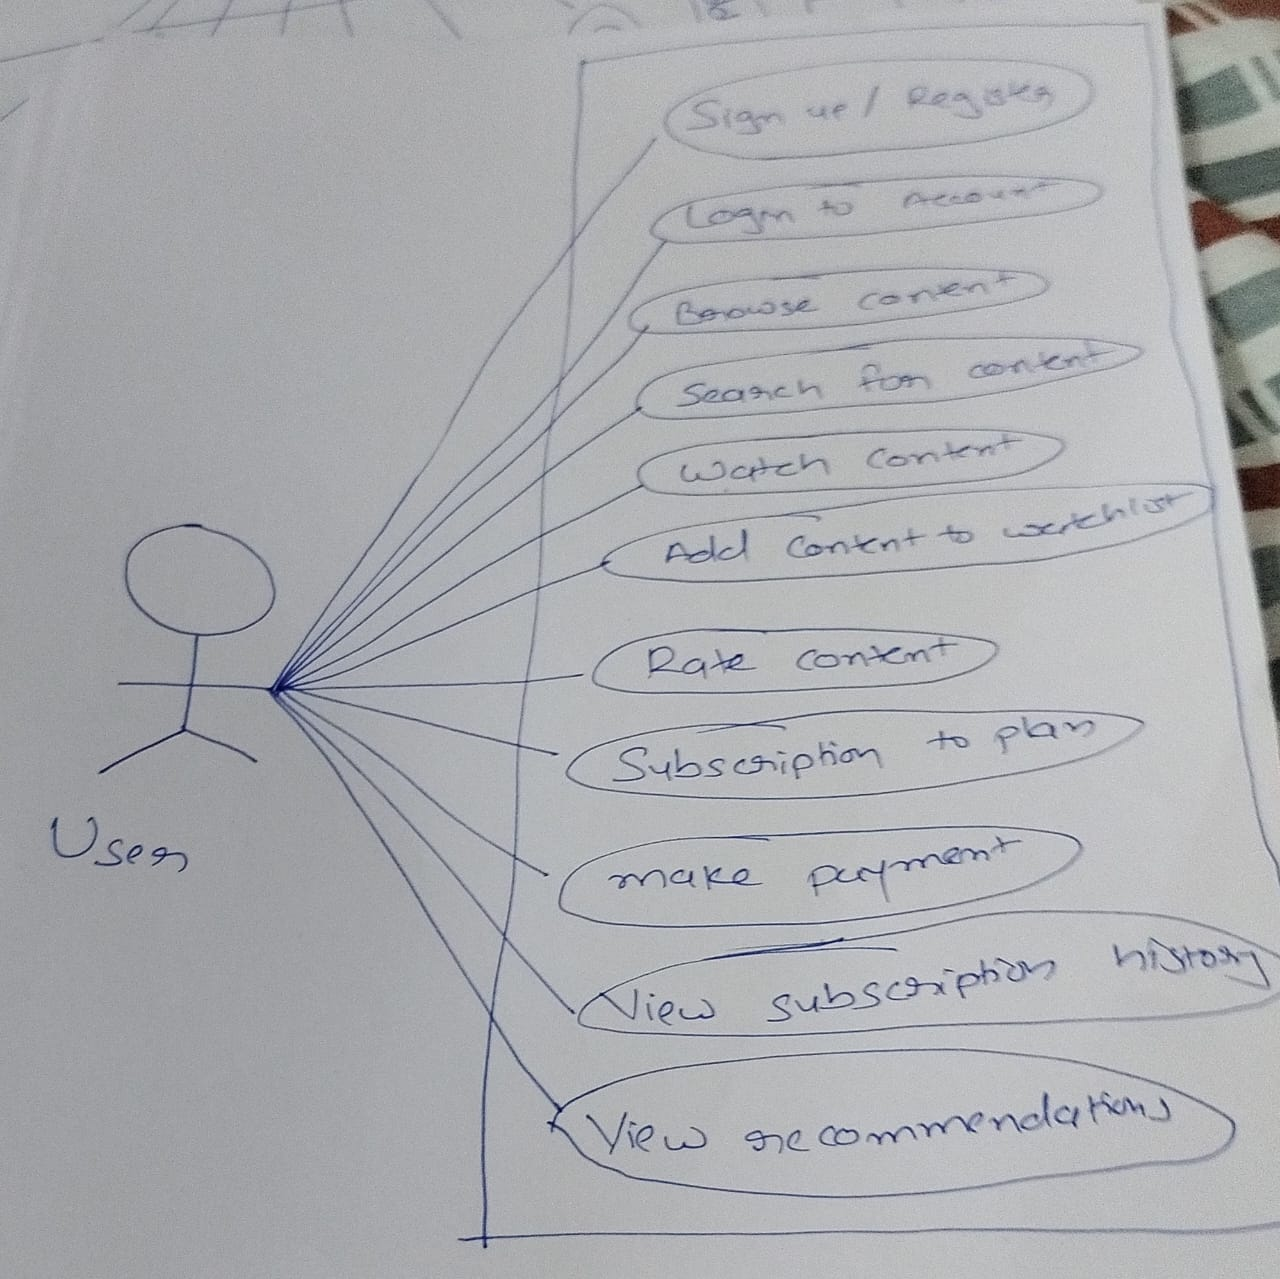 Sign up / Register
Login to Account
Browse content
Search for content
Watch content
Add content to watchlist
Rate content
Subscription to plan
make payment
View subscription history
View recommendations
User